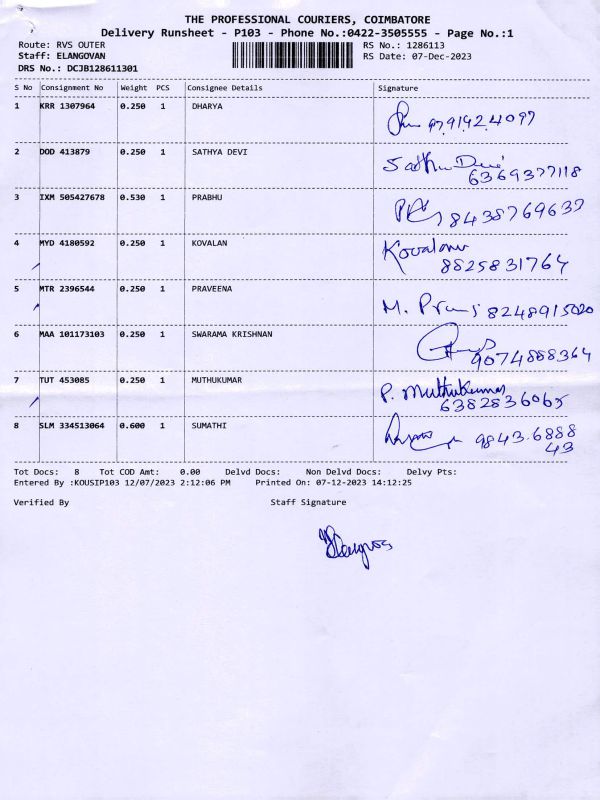 THE PROFESSIONAL COURIERS, COIMBATORE
Delivery Runsheet - P103 - Phone No.:0422-3505555 - Page No.:1
Route: RVS OUTER RS No.: 1286113
Staff: ELANGOVAN RS Date: 07-Dec-2023
DRS No.: DCJB128611301
S No Consignment No Weight PCS Consignee Details Signature
1 KRR 1307964 0.250 1 DHARYA
9791924097
2 DOD 413879 0.250 1 SATHYA DEVI Sathya Devi
6369377118
3 IXM 505427678 0.530 1 PRABHU
8438769637
4 MYD 4180592 0.250 1 KOVALAN Kovalan
8825831764
5 MTR 2396544 0.250 1 PRAVEENA
M. 8248915020
6 MAA 101173103 0.250 1 SWARAMA KRISHNAN
9074888364
7 TUT 453085 0.250 1 MUTHUKUMAR P. Muthukumar
6382836065
8 SLM 334513064 0.600 1 SUMATHI 9843.6888
43
Tot Docs: 8 Tot COD Amt: 0.00 Delvd Docs: Non Delvd Docs: Delvy Pts:
Entered By :KOUSIP103 12/07/2023 2:12:06 PM Printed On: 07-12-2023 14:12:25
Verified By Staff Signature